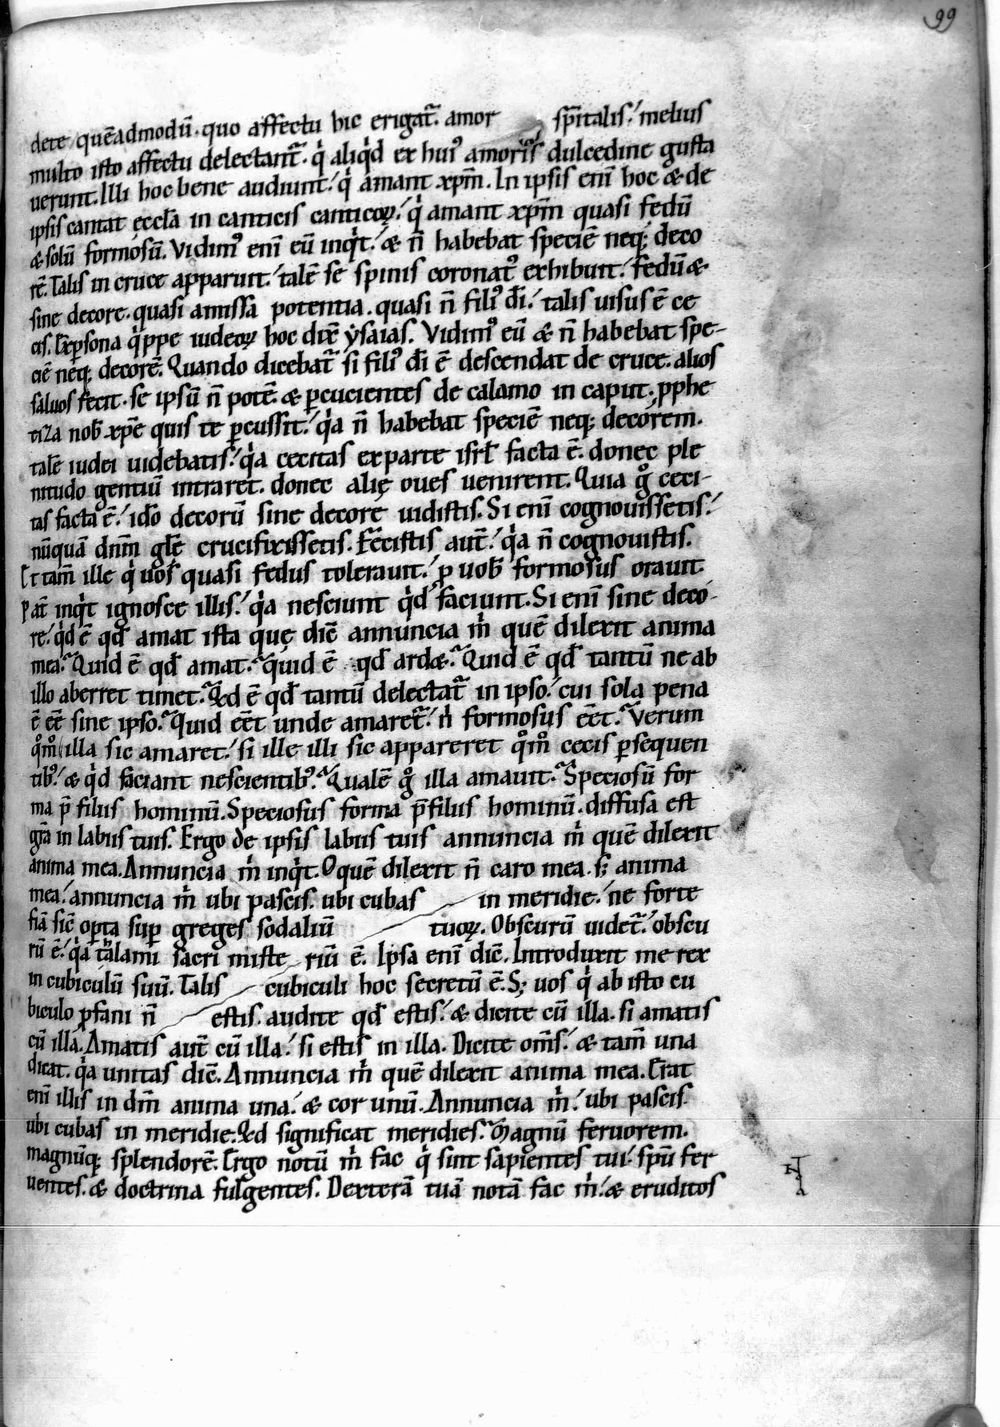 99
dete/ quēadmodū. quo affectu hic erigat᷑. amor sp̄italis.' melius
multo isto affectu delectant᷑. q̇ aliq̇d ex hui᷒ amoris dulcedine gusta
uerunt. Illi hoc bene audiunt.' q̇ amant xp̄m. In ipsis enī hoc & de
ipsis cantat ęccl̄a in canticis canticoꝝ.' q̇ amant xp̄m quasi fedū
& solū formosū. Vidim᷒ enī eū inq̇t.' & n̄ habebat speciē neq; deco
rē. Talis in cruce apparuit.' talē se spinis coronat᷒ exhibuit.' fedū &
sine decore. quasi amissa potentia. quasi n̄ fili᷒ dī.' talis uisus ē ce
cis. Ex ꝑsona q̇ppe iudeoꝝ hoc dix̄ ẏsaias. Vidim᷒ eū & n̄ habebat spe-
ciē neq; decorē. Quando dicebat᷑ si fili᷒ dī ē descendat de cruce. alios
saluos fecit. se ipsū n̄ potē. & ꝑcucientes de calamo in caput. ꝓphe
tiza nob̄ xp̄e quis te ꝑcussit.' q̇a n̄ habebat speciē neq; decorem.
talē iudei uidebatis.' q̇a cecitas ex parte isrł facta ē. donec ple
nitudo gentiū intraret. donec alię oues uenirent. Quia g̊ ceci-
tas facta ē.' id̄o decorū sine decore uidistis. Si enī cognouissetis.'
nūquā dn̄m gl̄e crucifixissetis. Fecistis aut̄.' q̇a n̄ cognouistis.
Et tam̄ ille q̇ uos quasi fedus tolerauit.' ꝓ uob̄ formosus orauit.
Pat̄ inq̇t ignosce illis.' q̇a nesciunt q̇d faciunt. Si enī sine deco-
re.' q̇d ē qd̄ amat ista quę dic̄ annuncia m̄ quē dilexit anima
mea. Quid ē qd̄ amat. quid ē qd̄ ard&. Quid ē qd̄ tantū ne ab
illo aberret timet. Qd ē qd̄ tantū delectat᷑ in ipso.' cui sola pena
ē eē sine ipso. quid eēt unde amaret᷑.' n̄ formosus eēt. Verum
q̊m̊ illa sic amaret.' si ille illi sic appareret q̊m̊ cecis ꝑsequen
tib᷒.' & q̇d faciant nescientib᷒. Qualē g̊ illa amauit. Speciosū for
ma p̄ filiis hominū. Speciosus forma p̄ filiis hominū. diffusa est
gr̄a in labiis tuis. Ergo de ipsis labiis tuis annuncia m̄ quē dilexit
anima mea. Annuncia m̄ inq̇t. O quē dilexit n̄ caro mea. s; anima
mea.' annuncia m̄ ubi pascis. ubi cubas in meridie.' ne forte
fiā sic̄ opta suꝑ greges sodaliū tuoꝝ. Obscurū uidet᷑.' obscu
rū ē.' q̇a thalami sacri miste riū ē. Ipsa enī dic̄. Introduxit me rex
in cubiculū suū. Talis cubiculi hoc secretū ē. S; uos q̇ ab isto cu
biculo ꝓfani n̄ estis. audite qd̄ estis.' & dicite cū illa. si amatis
cū illa. Amatis aut̄ cū illa.' si estis in illa. Dicite om̄s.' & tam̄ una
dicat. q̇a unitas dic̄. Annuncia m̄ quē dilexit anima mea. Erat
enī illis in dm̄ anima una.' & cor unū. Annuncia m̄.' ubi pascis.
ubi cubas in meridie. Qd significat meridies. Magnū feruorem.
magnūq; splendorē. Ergo notū m̄ fac q̇ sint sapientes tui. spū fer
uentes. & doctrina fulgentes. Dexterā tuā notā fac m̄.' & eruditos